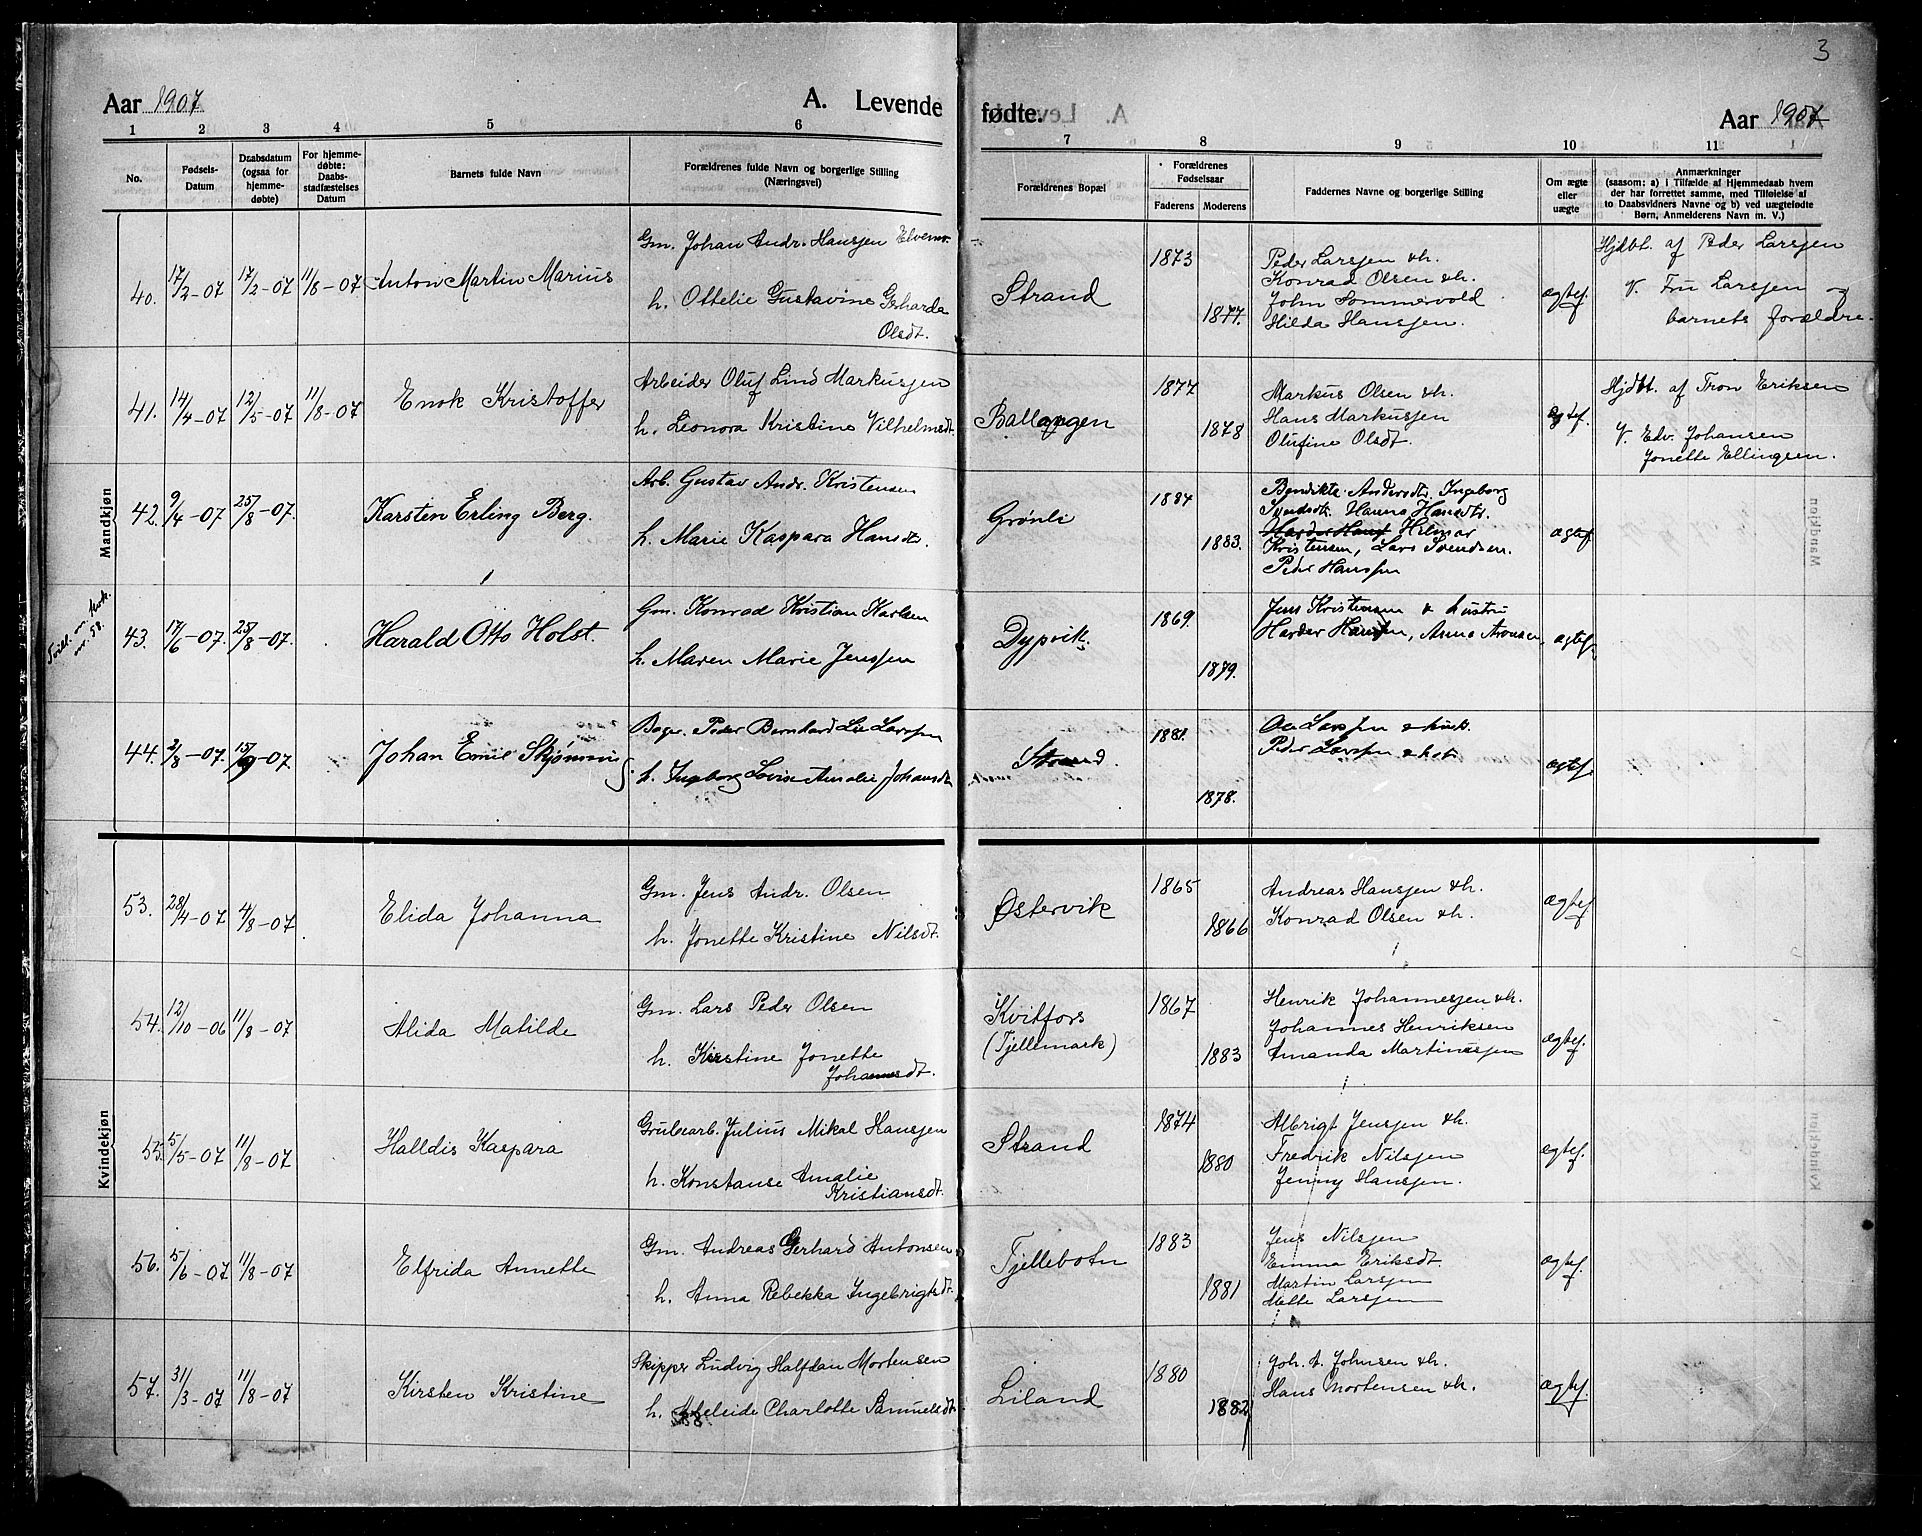 3
Aar 1907
A. Levende
fødte.
Aar 1907
1 2 3 4 5 6 7 8 9 10 11
No.
Fødsels-
Datum
Daabsdatum
(ogsaa for
hjemme-
døbte)
For hjemme-
døbte:
Daabs-
stadfæstelses
Datum
Barnets fulde Navn
Forældrenes fulde Navn og borgerlige Stilling
(Næringsvei)
Forældrenes Bopæl
Forældrenes
Fødselsaar
Faderens Moderens
Faddernes Navne og borgerlige Stilling
Om ægte
eller
uægte
Anmærkninger
(saasom: a) i Tilfælde af Hjemmedaab hvem
der har forrettet samme, med Tilføielse af
to Daabsvidners Navne og b) ved uægtefødte
Børn, Anmelderens Navn m. V.)
Mandkjøn
40. 17/2-07 17/2-07 11/8-07 Anton Martin Marius
Gm. Johan Andr. Hansjen Elvemo.
h. Ottelie Gustavine Gerharda
Olsdt.
Strand
1873
1877.
Peder Larsjen & h.
Konrad Olsen & h.
John Sommervold
Hilda Hansjen.
ægtef.
Hjdbt. af Peder Larsjen
v. Fru Larsjen og
barnets forældre.
41. 14/4-07 12/5-07 11/8-07 Enok Kristoffer
Arbeider Oluf Lind Markusjen
h. Leonora Kristine Vilhelmsdt.
Ballangen
1877
1878
Markus Olsen & h.
Hans Markusjen
Olufine Olsdt.
ægtef.
Hjdbt. af Tron Eriksen
v. Edv. Johansen
Jonette Ellingsen.
42. 9/4-07 25/8-07. Karsten Erling Berg.
Arb. Gustav Andr. Kristensen
h. Marie Kaspara Hansdt.
Grønli
1884
1883.
Bendikte Andersdt. Ingeborg
Svendsdt. Hanna Hansdt.
Harder Hans Hilmar
Kristensen, Lars Svendsen.
Peder Hansjen
ægtef
Tvill. m. kvk.
nr. 58.
43. 17/6-07. 25/8-07. Harald Otto Holst.
Gm. Konrad Kristian Karlsen
h. Maren Marie Jensjen
Dypvik.
1869.
1879.
Jens Kristensen & hustru
Harder Hansen, Anna Aronsen
ægtef.
44. 2/8-07. 15/9-07. Johan Emil Skjøming
Peder Bernhard Lie Larsjen
h. Ingeborg Lovise Amalie Johansdt
Strand.
1881.
1878.
Larsjen & hust.
Peder Larsjen & hst.
ægtef.
Kvindekjøn
53. 28/4-07 4/8-07 Elida Johanna
Gm. Jens Andr. Olsen
h. Jonette Kristine Nilsdt.
Østervik
1865
1866
Andreas Hansjen & h.
Konrad Olsen & h.
ægtef.
54. 12/10-06 11/8-07 Alida Matilde
Gm. Lars Peder Olsen
h. Kirstine Jonette
Johannesdt.
Kvitfors
(Tjellemark)
1867
1883
Henrik Johannesjen & h.
Johannes Henriksen
Amanda Martinusjen
ægtef.
55. 5/5-07 11/8-07 Halldis Kaspara
Grubearb. Julius Mikal Hansjen
h. Konstanse Amalie
Kristiansdt.
Strand
1874
1880
Albrigt Jensjen & h.
Fredrik Nilsjen
Jenny Hansjen.
ægtef.
56. 5/6-07 11/8-07 Elfrida Annette
Gm. Andreas Gerhard Antonsen
h. Anna Rebekka Ingebrigtsdt.
Tjellebotn
1883
1881
Jens Nilsjen
Emma Eriksdt.
Martin Larsjen
Mette Larsjen
ægtef.
57. 31/3-07 11/8-07 Kirsten Kristine
Skipper Ludvig Halfdan Mortensen
h. Adeleide Charlotte Samuelsdt.
Liland
1880
1882
Joh. A. Johnsen & h.
Hans Mortensen & h.
ægtef.